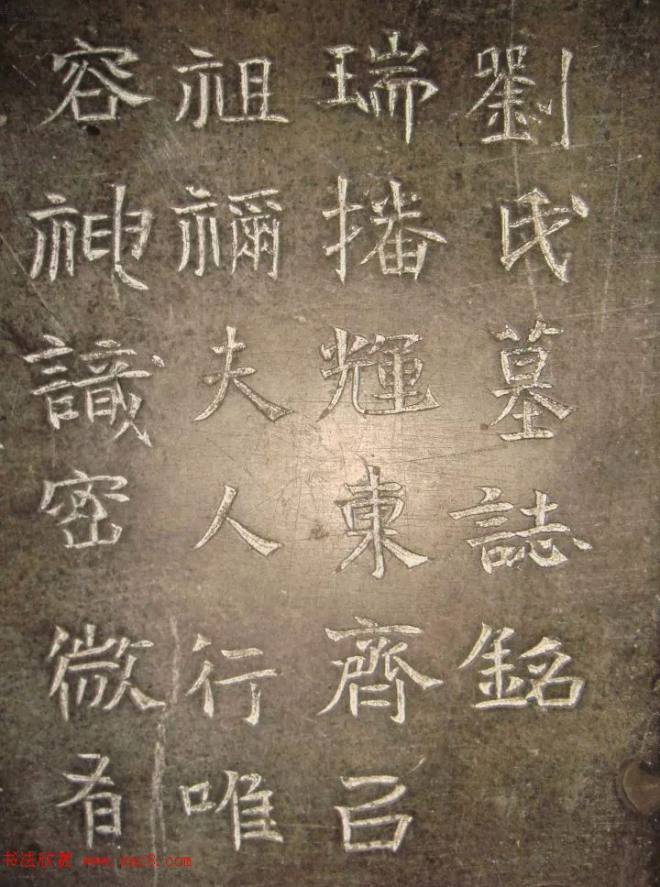 劉氏墓誌銘
瑞播輝東齊
祖禰夫人行唯
容神識密微
书法欣赏 www.yac8.com